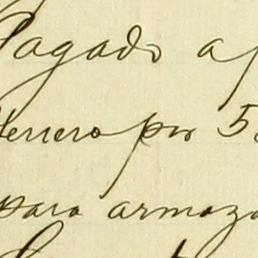 Pagado a
Herrero por 5
para armazo